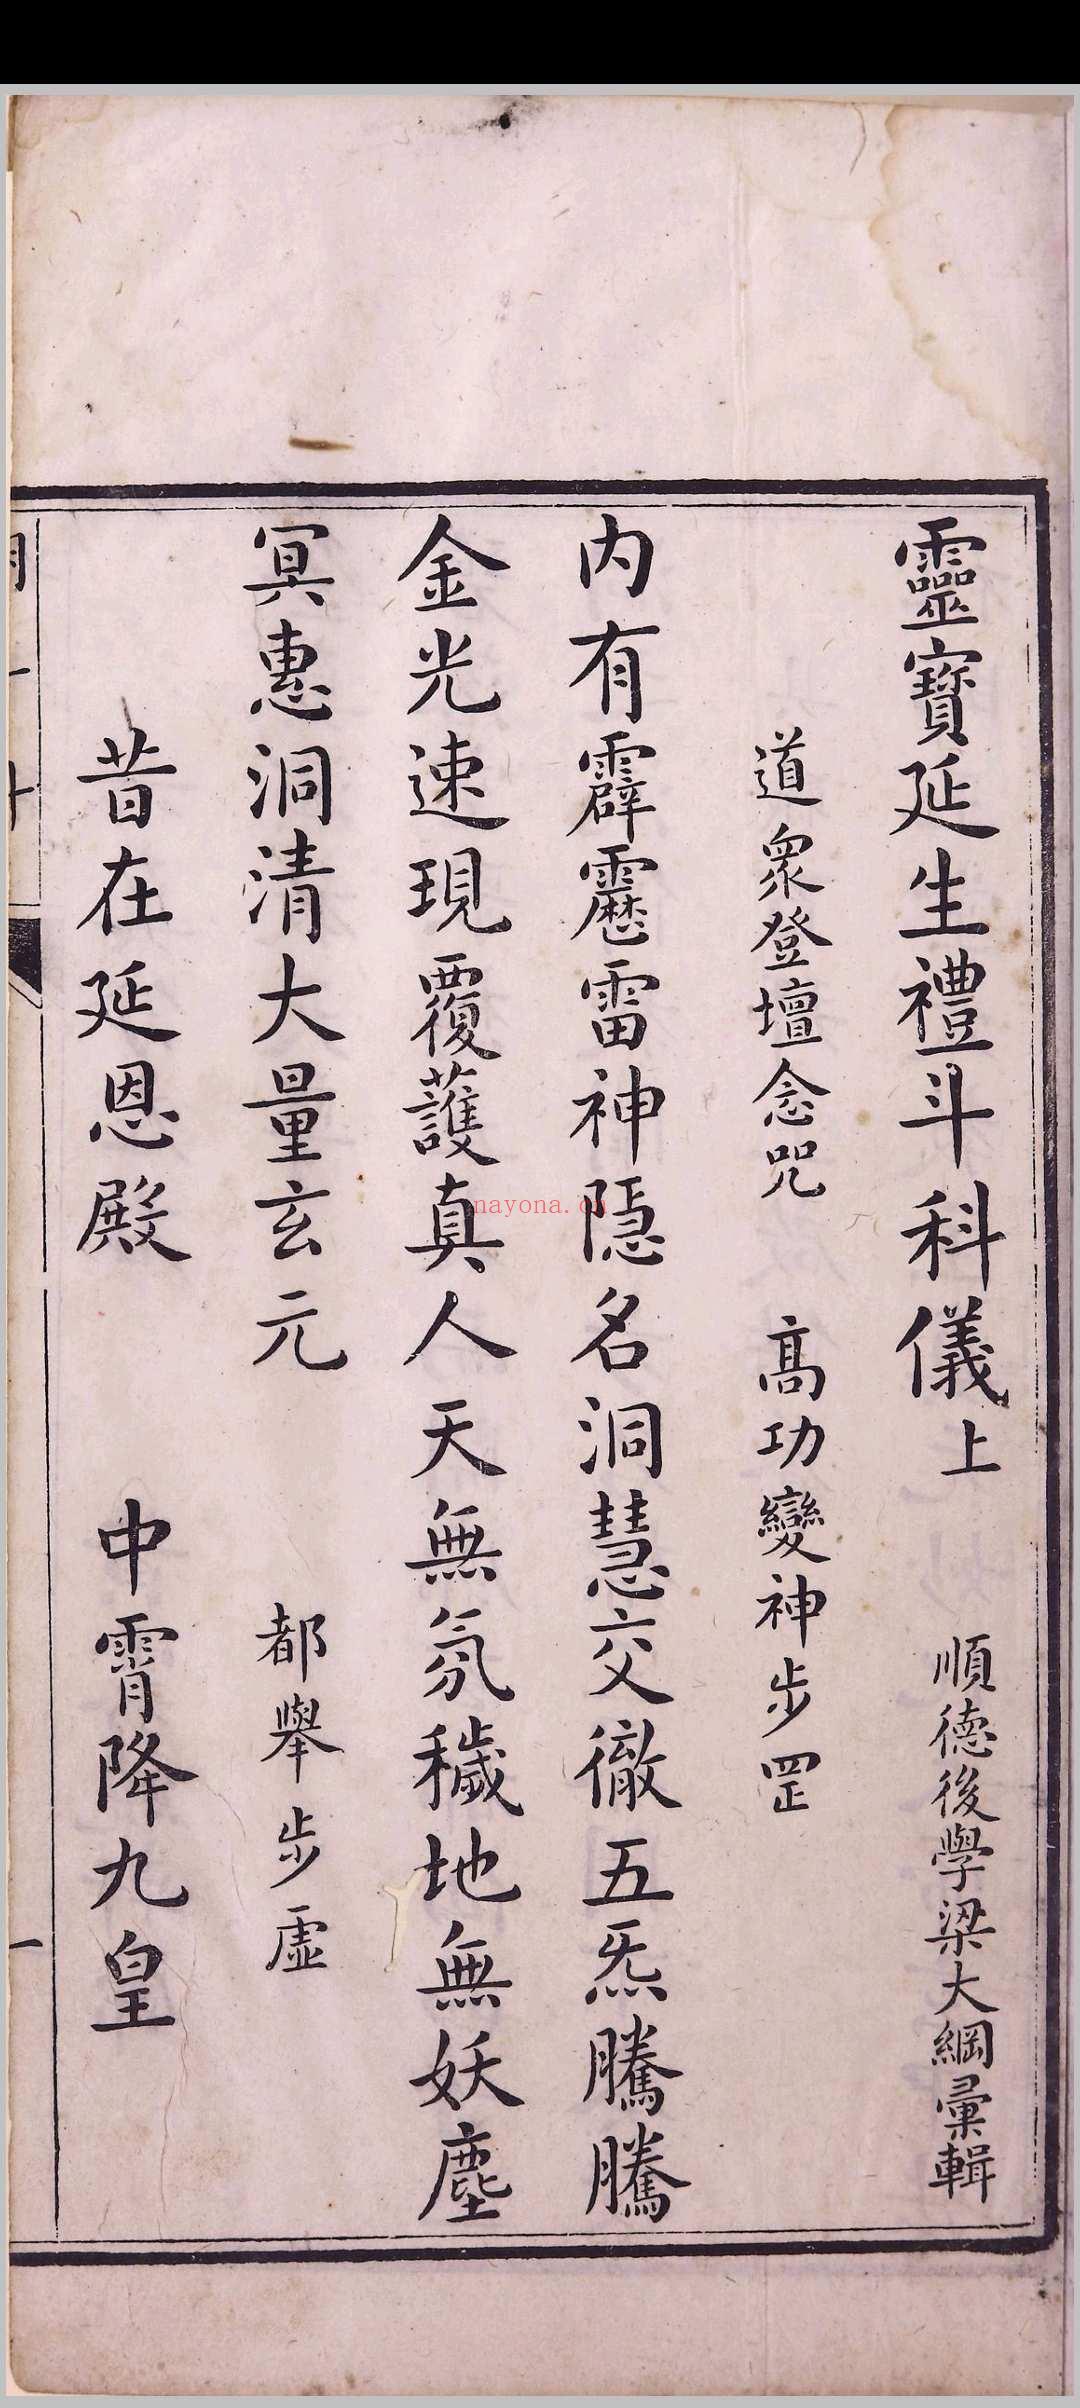 靈寶延生禮斗科儀上 順德後學梁大綱彙輯
道衆登壇念咒 高功變神步罡
內有霹靂雷神隱名洞慧交徹五炁騰騰
金光速現覆護真人天無氛穢地無妖塵
冥惠洞清大量玄元 都舉步虛
昔在延恩殿 中霄降九皇
一
nayona.cn